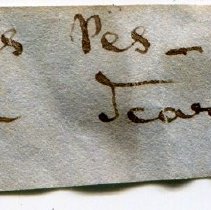 s Pes_
_ Tcar